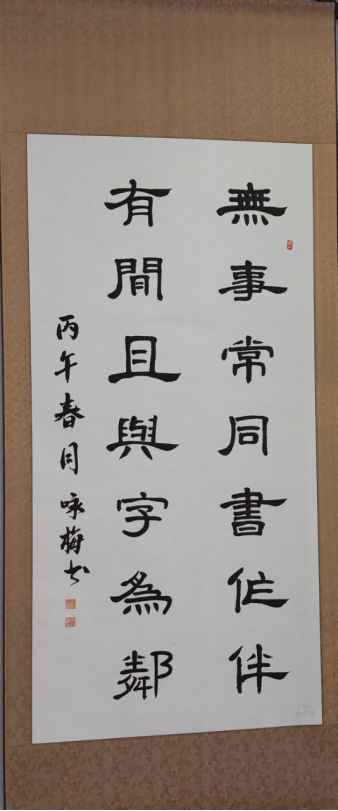 無事常同書作伴
有閒且與字為鄰
丙午春月咏梅书